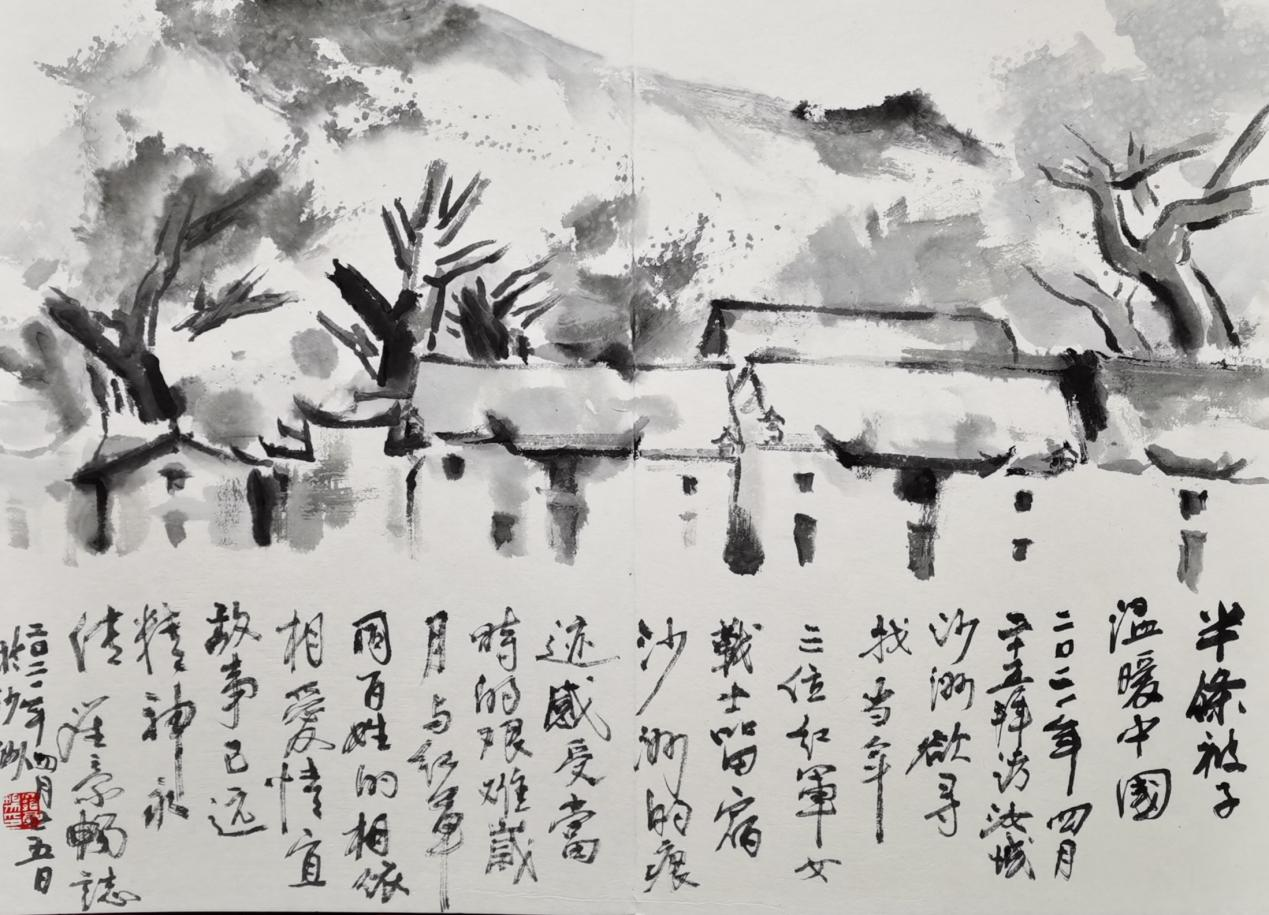 半條被子
溫暖中國
二〇二一年四月
二十五拜訪汝城
沙洲欲寻
找当年
三位红軍女
戰士留宿
沙洲的痕
迹感受當
時的艰难歲
月与红軍
同百姓的相依
相愛情宜
故事已远
精神永
传
畅誌
二〇二一年四月二十五日
於沙洲